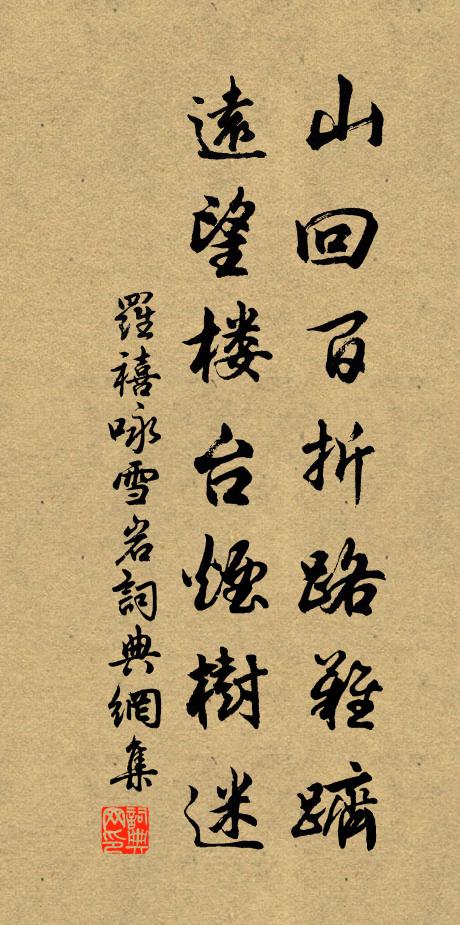 山回百折路難躋
遠望楼台煙樹迷
羅禧咏雪岩詞典網集
詞典網印